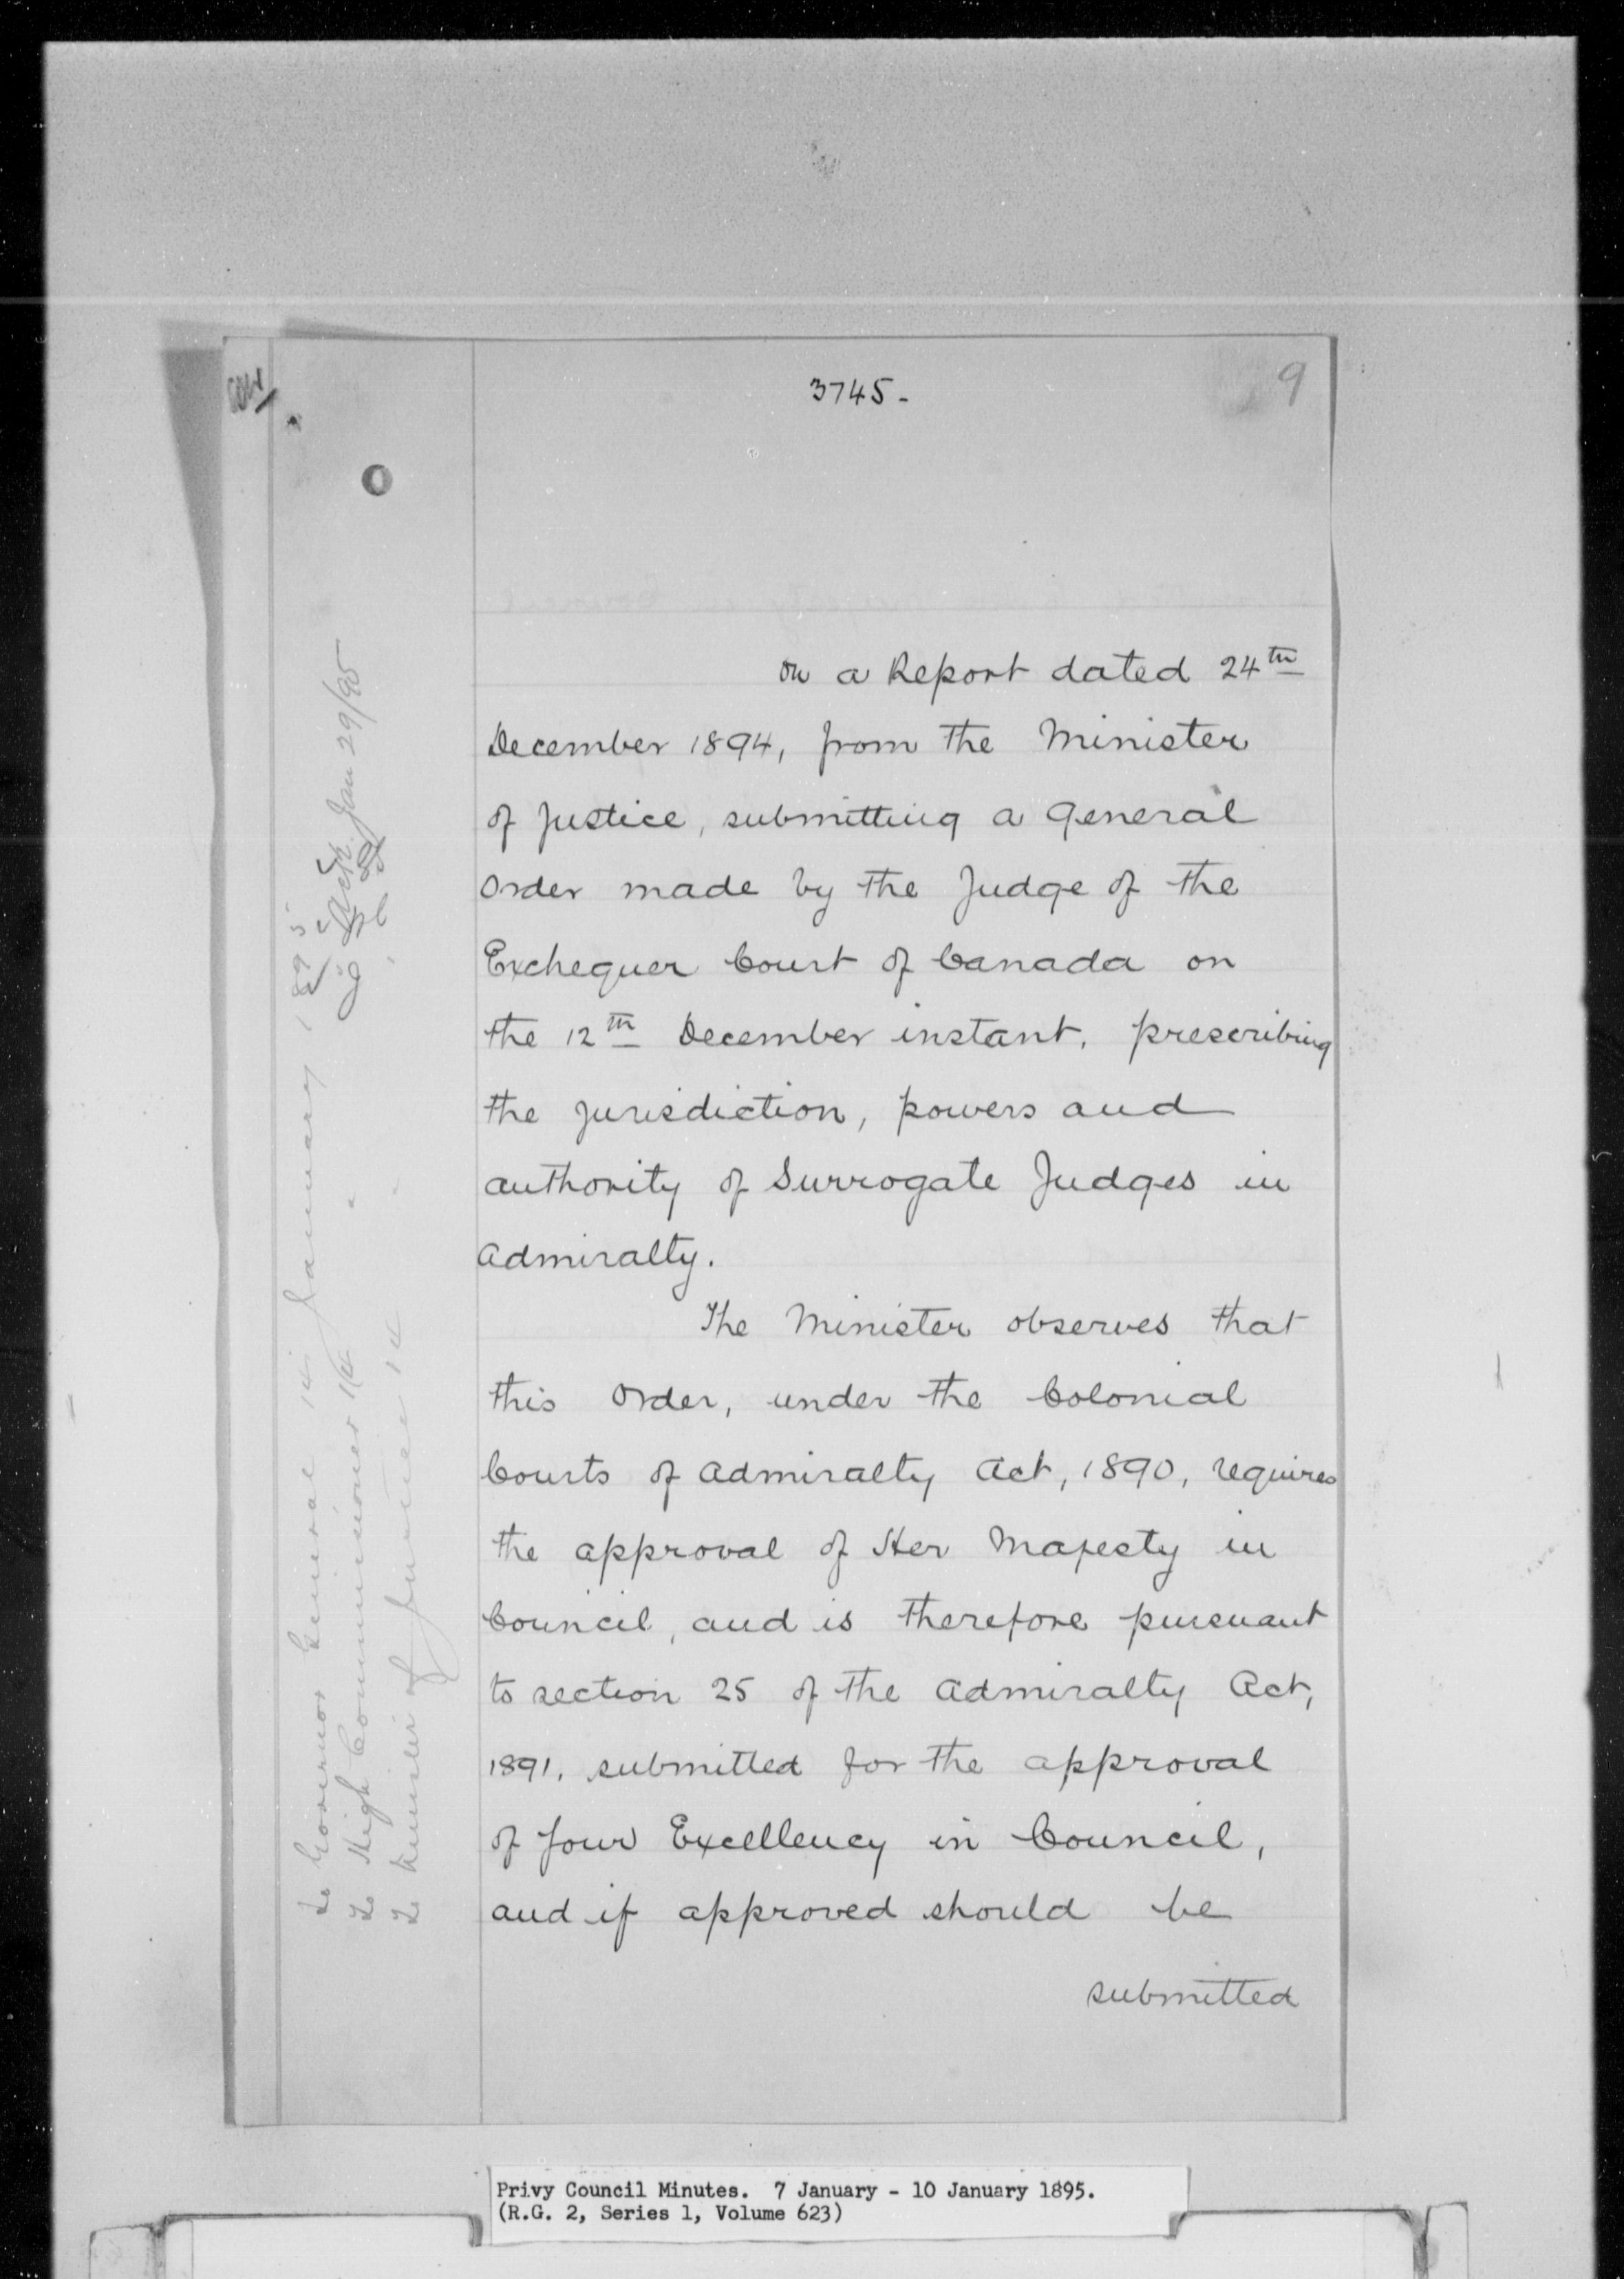 3745-
9
On a Report dated 24th
December 1894, from the Minister
of Justice, submitting a General
Order made by the Judge of the
Exchequer Court of Canada on
the 12th December instant, prescribing
the jurisdiction, powers and
authority of Surrogate Judges in
Admiralty.
The Minister observes that
this Order, under the Colonial
Courts of Admiralty Act, 1890, requires
the approval of Her Majesty in
Council, and is therefore pursuant
to section 25 of the Admiralty Act,
1891, submitted for the approval
of Your Excellency in Council,
and if approved should be
submitted
To Governor General 14 January 1895
To High Commissioner 14 "
To Minister of Justice 14 "
Jan 29/95
Privy Council Minutes. 7 January - 10 January 1895.
(R.G. 2, Series 1, Volume 623)